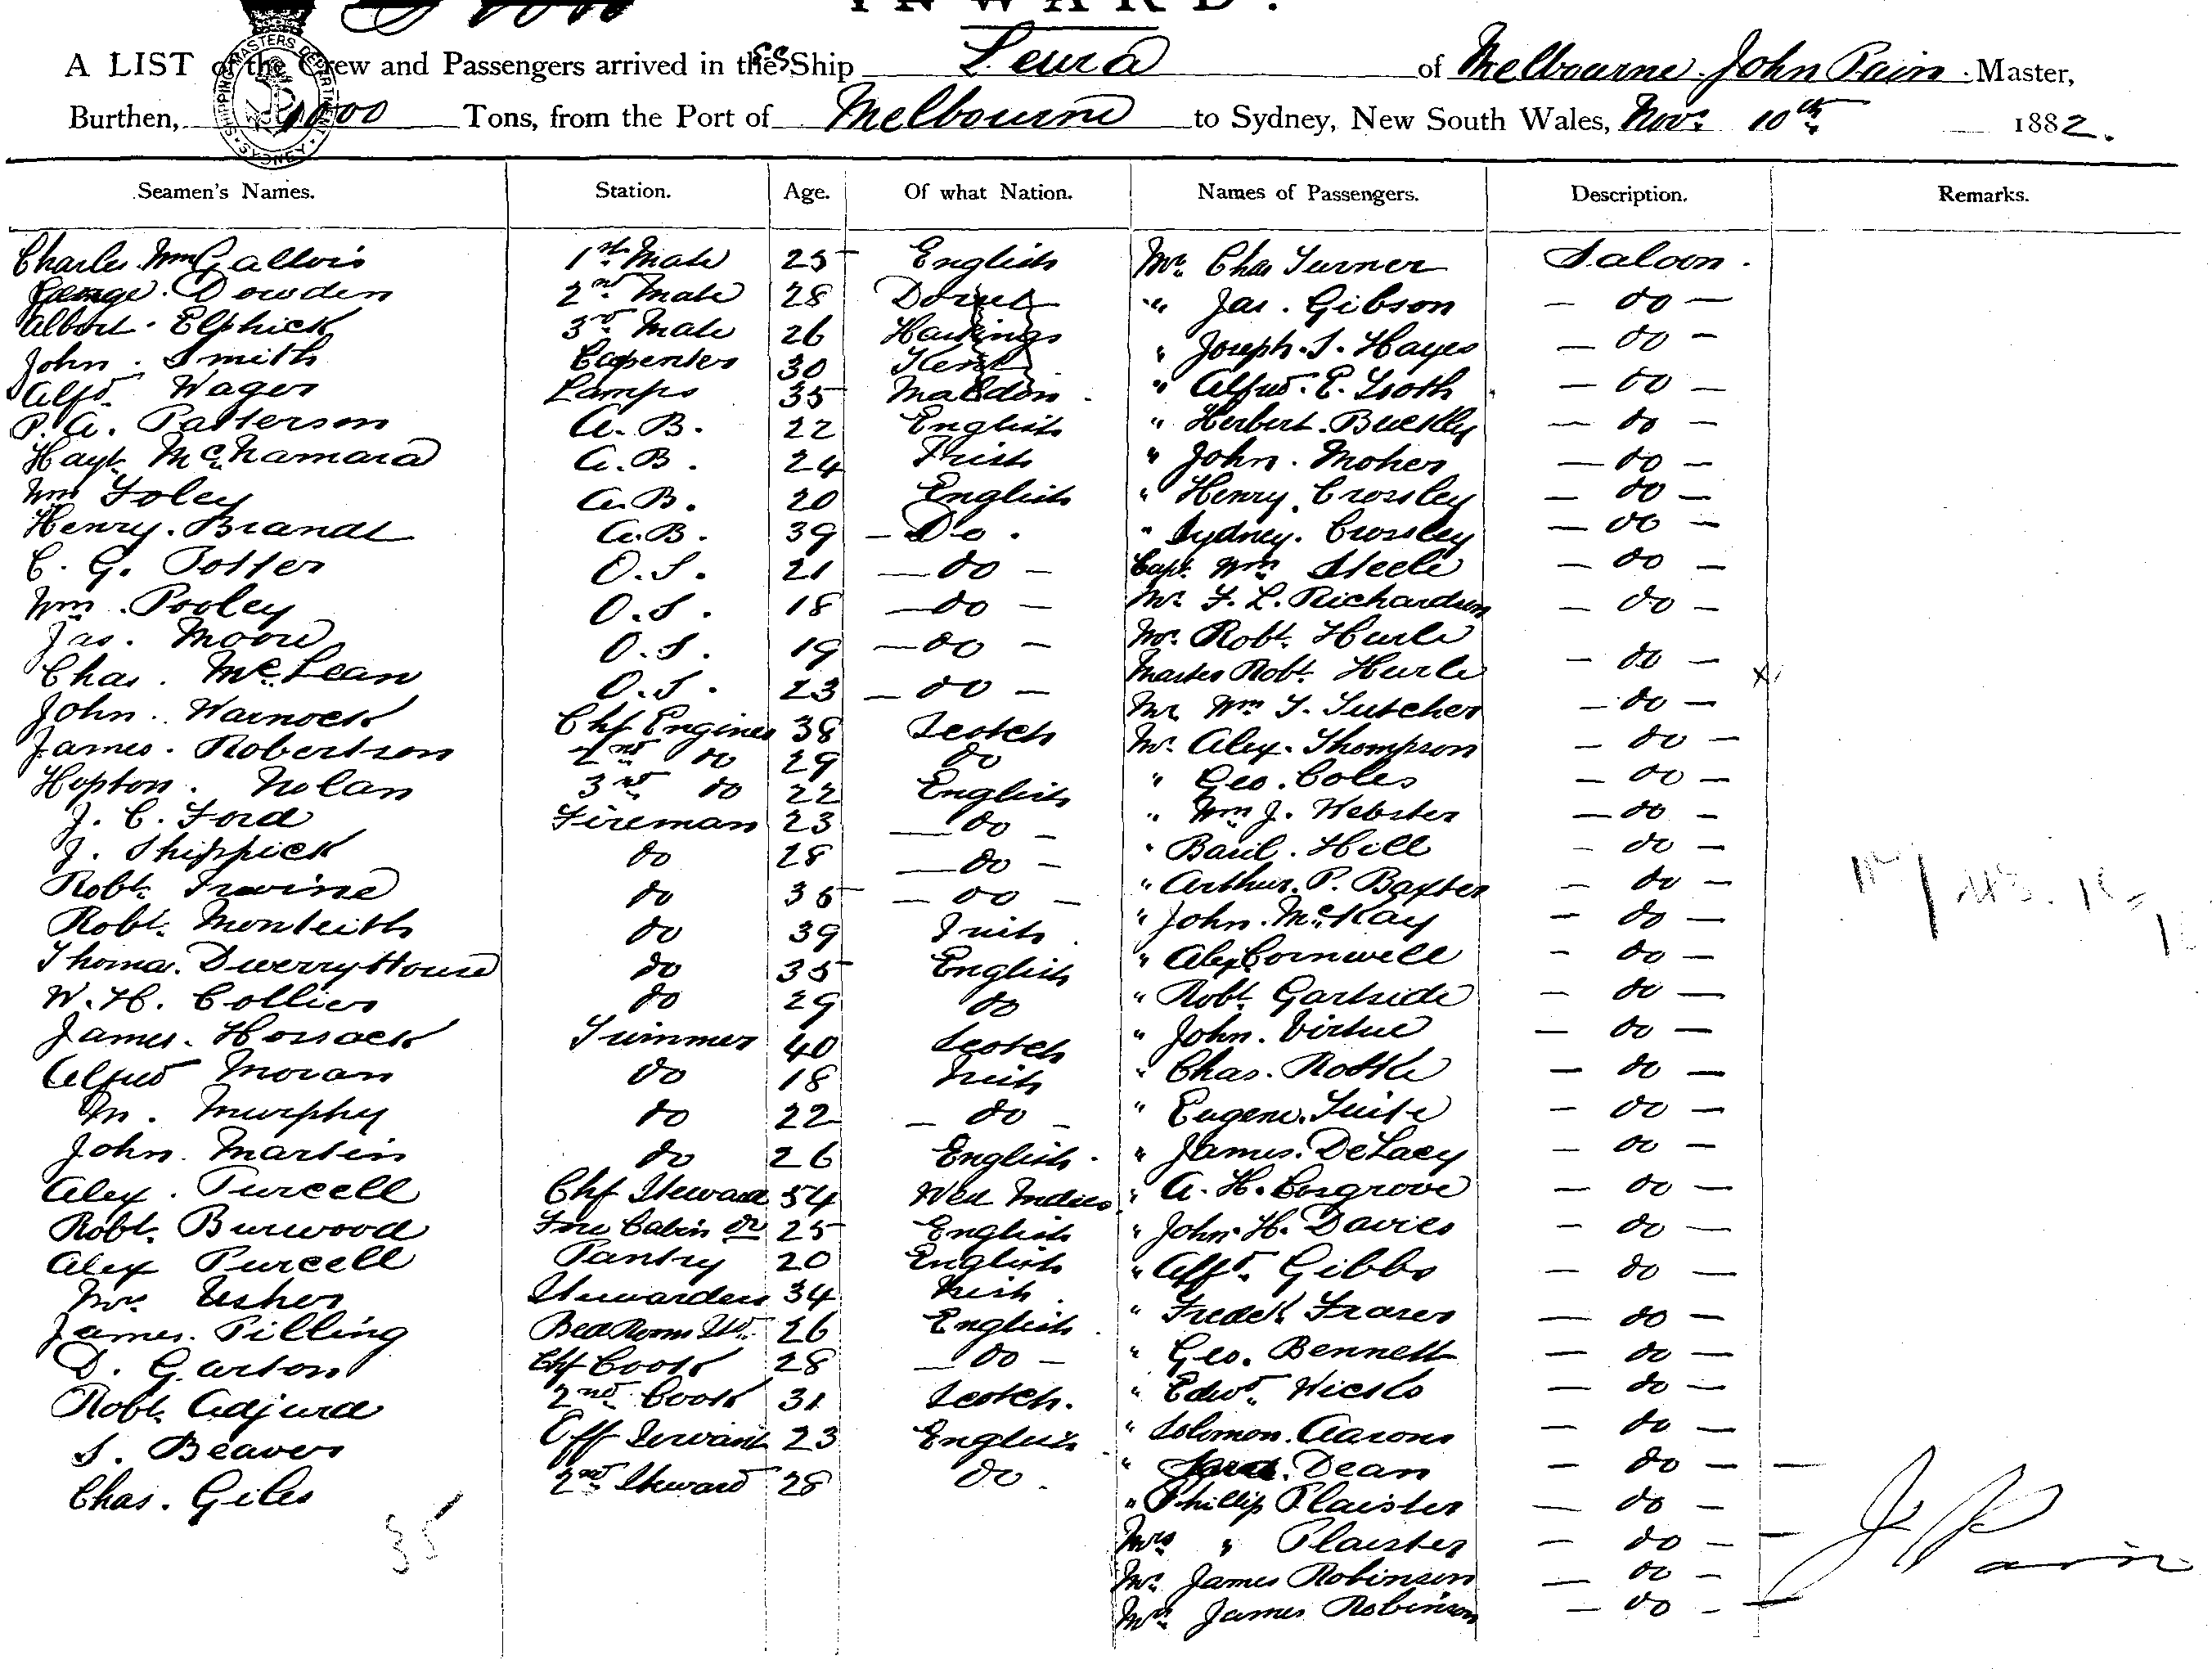 INWARD.
A LIST of the Crew and Passengers arrived in the SS Ship Leura of Melbourne. John Pain. Master,
Burthen, 1000 Tons, from the Port of Melbourne to Sydney, New South Wales, Nov. 10th 1882.
SHIPPING MASTERS DEPARTMENT SYDNEY
Seamen's Names. Station. Age. Of what Nation. Names of Passengers. Description. Remarks.
Charles Wm Gallois 1st Mate 25 English Mr. Chas Turner Saloon.
George. Dowden 2nd Mate 28 Dorset " Jas. Gibson — do —
Albert. Elphick 3rd Mate 26 Hastings " Joseph. S. Hayes — do —
John. Smith Carpenter 30 Kent " Alfred. E. Tooth — do —
Alfd. Wager Lamps 35 Maldon " Herbert. Buckley — do —
P. A. Patterson A. B. 22 English " John. Moher — do —
Hayt. McNamara A. B. 24 Irish " Henry. Crossley — do —
Wm Foley A. B. 20 English " Sydney. Crossley — do —
Henry. Brandt A. B. 39 — Do. Capt. Wm. Steele — do —
C. G. Potter O. S. 21 — do — Mr. F. L. Richardson — do —
Wm. Pooley O. S. 18 — do — Mr. Robt. Hurle
Jas. Moore O. S. 19 — do — Master Robt. Hurle — do — x
Chas. McLean O. S. 23 — do — Mr. Wm. T. Tutcher — do —
John. Warnock Chf Engineer 38 Scotch Mr. Alex. Thompson — do —
James. Robertson 2nd do 29 do " Geo. Coles — do —
Hopton. Nolan 3rd do 22 English " Wm J. Webster — do —
J. C. Ford Fireman 23 — do — " Basil. Hill — do —
J. Shippick do 28 — do — " Arthur. P. Baxter — do —
Robt. Irvine do 35 — do — " John. McKay — do —
Robt. Monteith do 39 Irish " Alex Cornwell — do —
Thomas. DwerryHouse do 35 English " Robt. Gartside — do —
W. H. Collier do 29 do " John. Virtue — do —
James. Hossack Trimmer 40 Scotch " Chas. Rothe — do —
Alfred Moran do 18 Irish " Eugene. Suite — do —
M. Murphy do 22 — do — " James. DeLacy — do —
John. Martin do 26 English. " A. H. Cosgrove — do —
Alex. Purcell Chf Steward 54 West Indies " John. H. Davies — do —
Robt. Burwood Fore Cabin do 25 English " Alfd. Gibbs — do —
Alex Purcell Pantry 20 English " Fredek Fraser — do —
Mrs. Usher Stewardess 34 Irish. " Geo. Bennett — do —
James. Pilling Bed Room Std. 26 English. " Edwd. Wicks — do —
D. Garton Chf Cook 28 — do — " Solomon. Aarons — do —
Robt. Adjurd 2nd Cook 31 Scotch. " Dean — do —
S. Beaver Off Servant 23 English " Phillip Plaister — do —
Chas. Giles 2nd Steward 28 do. Mrs " Plaister — do —
35 Mr. James Robinson — do —
Mrs. James Robinson — do —
J Pain